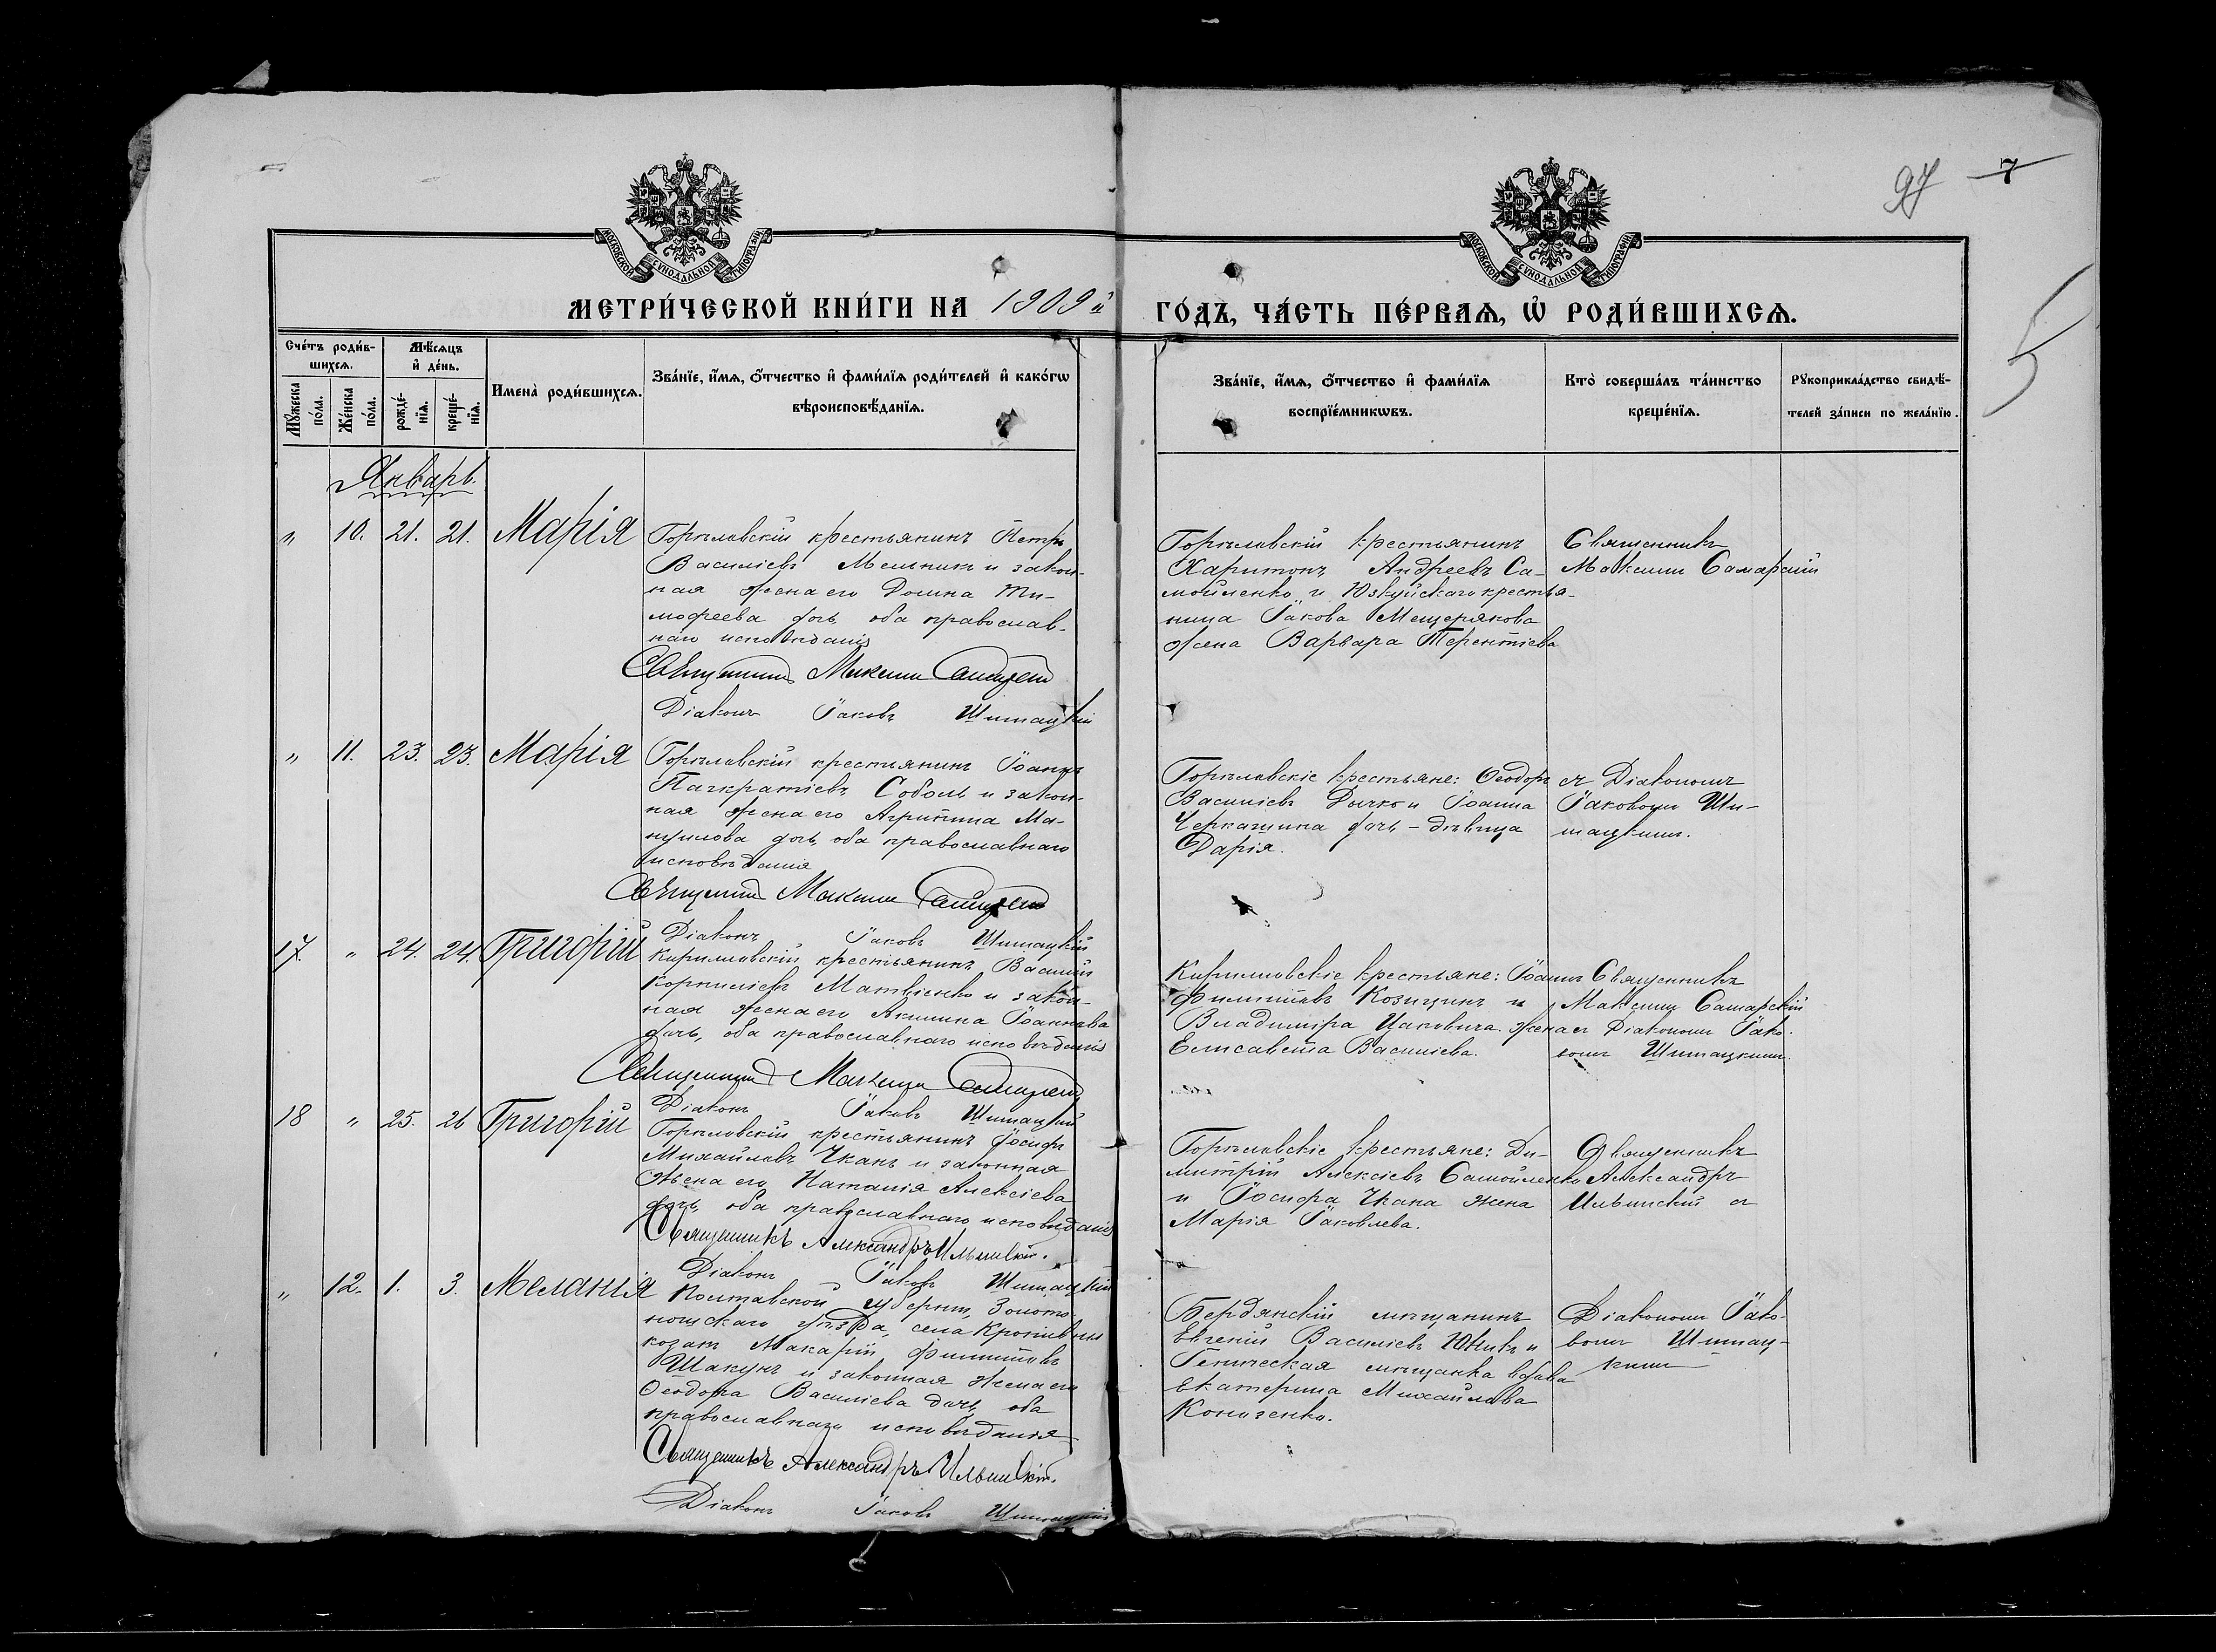 97 7
5
МОСКОВСКОЙ СУНОДАЛЬНОЙ ТИПОГРАФІИ
МОСКОВСКОЙ СУНОДАЛЬНОЙ ТИПОГРАФІИ
МЕТРИ́ЧЕСКОЙ КНИ́ГИ НА 1909й ГО́ДЪ, ЧА́СТЬ ПЕ́РВАѦ, Ѡ҆ РОДИ́ВШИХСѦ.
Сче́тъ роди́в-
шихсѧ.
Мꙋ́жеска по́ла.
Же́нска по́ла.
Мѣ́сѧцъ
и҆ де́нь.
рожде́-нїѧ.
креще́-нїѧ.
Имена̀ роди́вшихсѧ.
Зва́нїе, и҆́мѧ, ѻ҆́тчество и҆ фами́лїѧ роди́телей и҆ како́гѡ
вѣроисповѣ́данїѧ.
Зва́нїе, и҆́мѧ, ѻ҆́тчество и҆ фами́лїѧ
воспрїе́мникѡвъ.
Кто̀ соверша́лъ та́инство
креще́нїѧ.
Рꙋкоприкла́дство свидѣ́-
телей за́писи по жела́нїю.
Январь.
„ 10. 21. 21. Марія
Горѣловскій крестьянинъ Петръ
Василіевъ Мельникъ и закон-
ная жена его Домна Ти-
мофеева дочь, оба православ-
наго исповѣданія
Священникъ Максимъ Самарскій
Діаконъ Іаковъ Шимацкій
Горѣловскій крестьянинъ
Харитонъ Андреевъ Са-
мойленко и Юзкуйскаго крестья-
нина Іакова Мещерякова
жена Варвара Терентіева
Священникъ
Максимъ Самарскій
„ 11. 23. 23. Марія
Горѣловскій крестьянинъ Іоаннъ
Панкратіевъ Соболь и закон-
ная жена его Агрипина Ма-
нуилова дочь, оба православнаго
исповѣданія
Священникъ Максимъ Самарскій
Діаконъ Іаковъ Шимацкій
Горѣловскіе крестьяне: Ѳеодоръ
Василіевъ Дычко и Іоанна
Черкашина дочь – дѣвица
Дарія.
съ Діакономъ
Іаковомъ Ши-
мацкимъ.
17. „ 24. 24. Григорій
Кирилловскій крестьянинъ Василій
Корниліевъ Матвіенко и закон-
ная жена его Акилина Іоаннова
дочь, оба православнаго исповѣданія
Священникъ Максимъ Самарскій
Діаконъ Іаковъ Шимацкій
Кирилловскіе крестьяне: Іоаннъ
Филипповъ Козицинъ и
Владиміра Цаковича жена
Елисавета Василіева.
Священникъ
Максимъ Самарскій
съ Діакономъ Іако-
вомъ Шимацкимъ.
18 „ 25. 26 Григорій
Горѣловскій крестьянинъ Іосифъ
Михайловъ Чканъ и законная
жена его Наталія Алексіева
дочь, оба православнаго исповѣданія
Священникъ Александръ Ильинскій.
Діаконъ Іаковъ Шимацкій
Горѣловскіе крестьяне: Ди-
митрій Алексіевъ Самойленко
и Іосифа Чкана жена
Марія Іаковлева.
Священникъ
Александръ
Ильинскій съ
„ 12. 1. 3. Меланія
Полтавской губерніи, Золото-
ношскаго уѣзда, села Кропивны
козакъ Макарій Филипповъ
Шакунъ и законная жена его
Ѳеодора Василіева дочь, оба
православнаго исповѣданія
Священникъ Александръ Ильинскій.
Діаконъ Іаковъ Шимацкій
Бердянскій мѣщанинъ
Евгеній Василіевъ Юникъ и
Геническая мѣщанка вдова
Екатерина Михайлова
Конозенко.
Діакономъ Іако-
вомъ Шимац-
кимъ